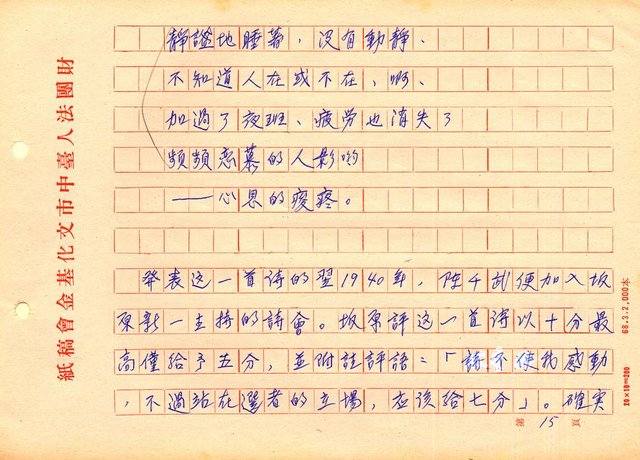 靜謐地睡著，没有動靜、
不知道人在或不在、啊、
加過了夜班、疲労也消失了
頻頻恋慕的人影喲
——心思的痠疼。
発表这一首诗的翌1940年，陈千武便加入坂
原新一主持的詩會。坂原評这一首诗以十分最
高僅給予五分，並附註評語：「詩不使我感動
，不過站在選者的立場，应該給七分」。確実
第 15 頁
財團法人臺中市文化基金會稿紙
68.3.2,000本
20×10=200